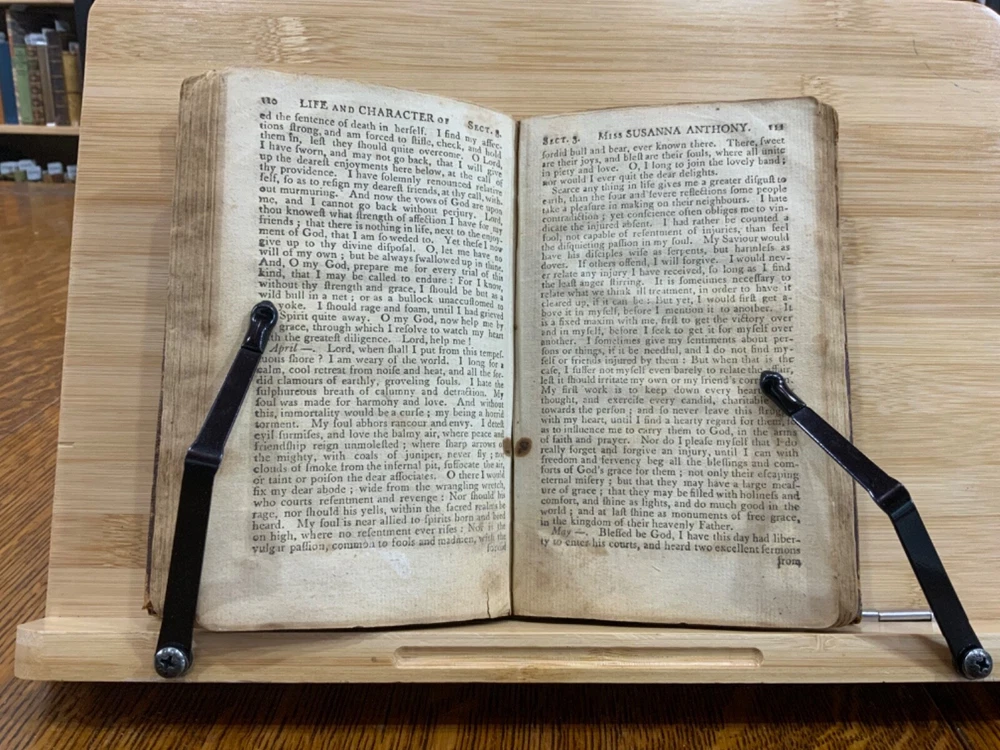 120 LIFE AND CHARACTER OF SECT. 3.
ed the sentence of death in herself. I find my affec-
tions ſtrong, and am forced to ſtifle, check, and hold
them in, leſt they ſhould quite overcome. O Lord,
I have ſworn, and may not go back, that I will give
up the deareſt enjoyments here below, at the call of
thy providence. I have ſolemnly renounced relative
ſelf, ſo as to reſign my deareſt friends, at thy call, with-
out murmuring. And now the vows of God are upon
me, and I cannot go back without perjury. Lord,
thou knoweſt what ſtrength of affection I have for my
friends; that there is nothing in life, next to the enjoy-
ment of God, that I am ſo weded to. Yet theſe I now
give up to thy divine diſpoſal. O, let me have no
will of my own; but be always ſwallowed up in thine.
And, O my God, prepare me for every trial of this
kind, that I may be called to endure: For I know,
without thy ſtrength and grace, I ſhould be but as a
wild bull in a net; or as a bullock unaccuſtomed to
yoke. I ſhould rage and foam, until I had grieved
Spirit quite away. O my God, now help me by
grace, through which I reſolve to watch my heart
with the greateſt diligence. Lord, help me!
April —. Lord, when ſhall I put from this tempeſ-
tuous ſhore? I am weary of the world. I long for a
calm, cool retreat from noiſe and heat, and all the ſor-
did clamours of earthly, groveling ſouls. I hate the
ſulphureous breath of calumny and detraction. My
ſoul was made for harmony and love. And without
this, immortality would be a curſe; my being a horrid
torment. My ſoul abhors rancour and envy. I deteſt
evil ſurmiſes, and love the balmy air, where peace and
friendſhip reign unmoleſted; where ſharp arrows of
the mighty, with coals of juniper, never fly; no
clouds of ſmoke from the infernal pit, ſuffocate the air,
or taint or poiſon the dear aſſociates. O there I would
fix my dear abode; wide from the wrangling wretch,
who courts reſentment and revenge: Nor ſhould his
rage, nor ſhould his yells, within the ſacred realms be
heard. My ſoul is near allied to ſpirits born and bred
on high, where no reſentment ever riſes: Nor is the
vulgar paſſion, common to fools and madmen, with the
ſordid
SECT. 3. MISS SUSANNA ANTHONY. 121
ſordid bull and bear, ever known there. There, ſweet
are their joys, and bleſt are their ſouls, where all unite
in piety and love. O, I long to join the lovely band;
nor would I ever quit the dear delights.
Scarce any thing in life gives me a greater diſguſt to
earth, than the ſour and ſevere reflections ſome people
take a pleaſure in making on their neighbours. I hate
contradiction; yet conſcience often obliges me to vin-
dicate the injured abſent. I had rather be counted a
fool, not capable of reſentment of injuries, than feel
the diſquieting paſſion in my ſoul. My Saviour would
have his diſciples wiſe as ſerpents, but harmleſs as
doves. If others offend, I will forgive. I would nev-
er relate any injury I have received, ſo long as I find
the leaſt anger ſtirring. It is ſometimes neceſſary to
relate what we think ill treatment, in order to have it
cleared up, if it can be: But yet, I would firſt get a-
bove it myſelf, before I mention it to another. It
is a fixed maxim with me, firſt to get the victory over
and in myſelf, before I ſeek to get it for myſelf over
another. I ſometimes give my ſentiments about per-
ſons or things, if it be needful, and I do not find my-
ſelf or friends injured by them: But when that is the
caſe, I ſuffer not myſelf even barely to relate the affair,
leſt it ſhould irritate my own or my friend's
My firſt work is to keep down every
thought, and exerciſe every candid, charitable
towards the perſon; and ſo never leave this
with my heart, until I find a hearty regard for them, ſo
as to influence me to carry them to God, in the arms
of faith and prayer. Nor do I pleaſe myſelf that I do
really forget and forgive an injury, until I can with
freedom and fervency beg all the bleſſings and com-
forts of God's grace for them; not only their eſcaping
eternal miſery; but that they may have a large meaſ-
ure of grace; that they may be filled with holineſs and
comfort, and ſhine as lights, and do much good in the
world; and at laſt ſhine as monuments of free grace,
in the kingdom of their heavenly Father.
May —. Bleſſed be God, I have this day had liber-
ty to enter his courts, and heard two excellent ſermons
from